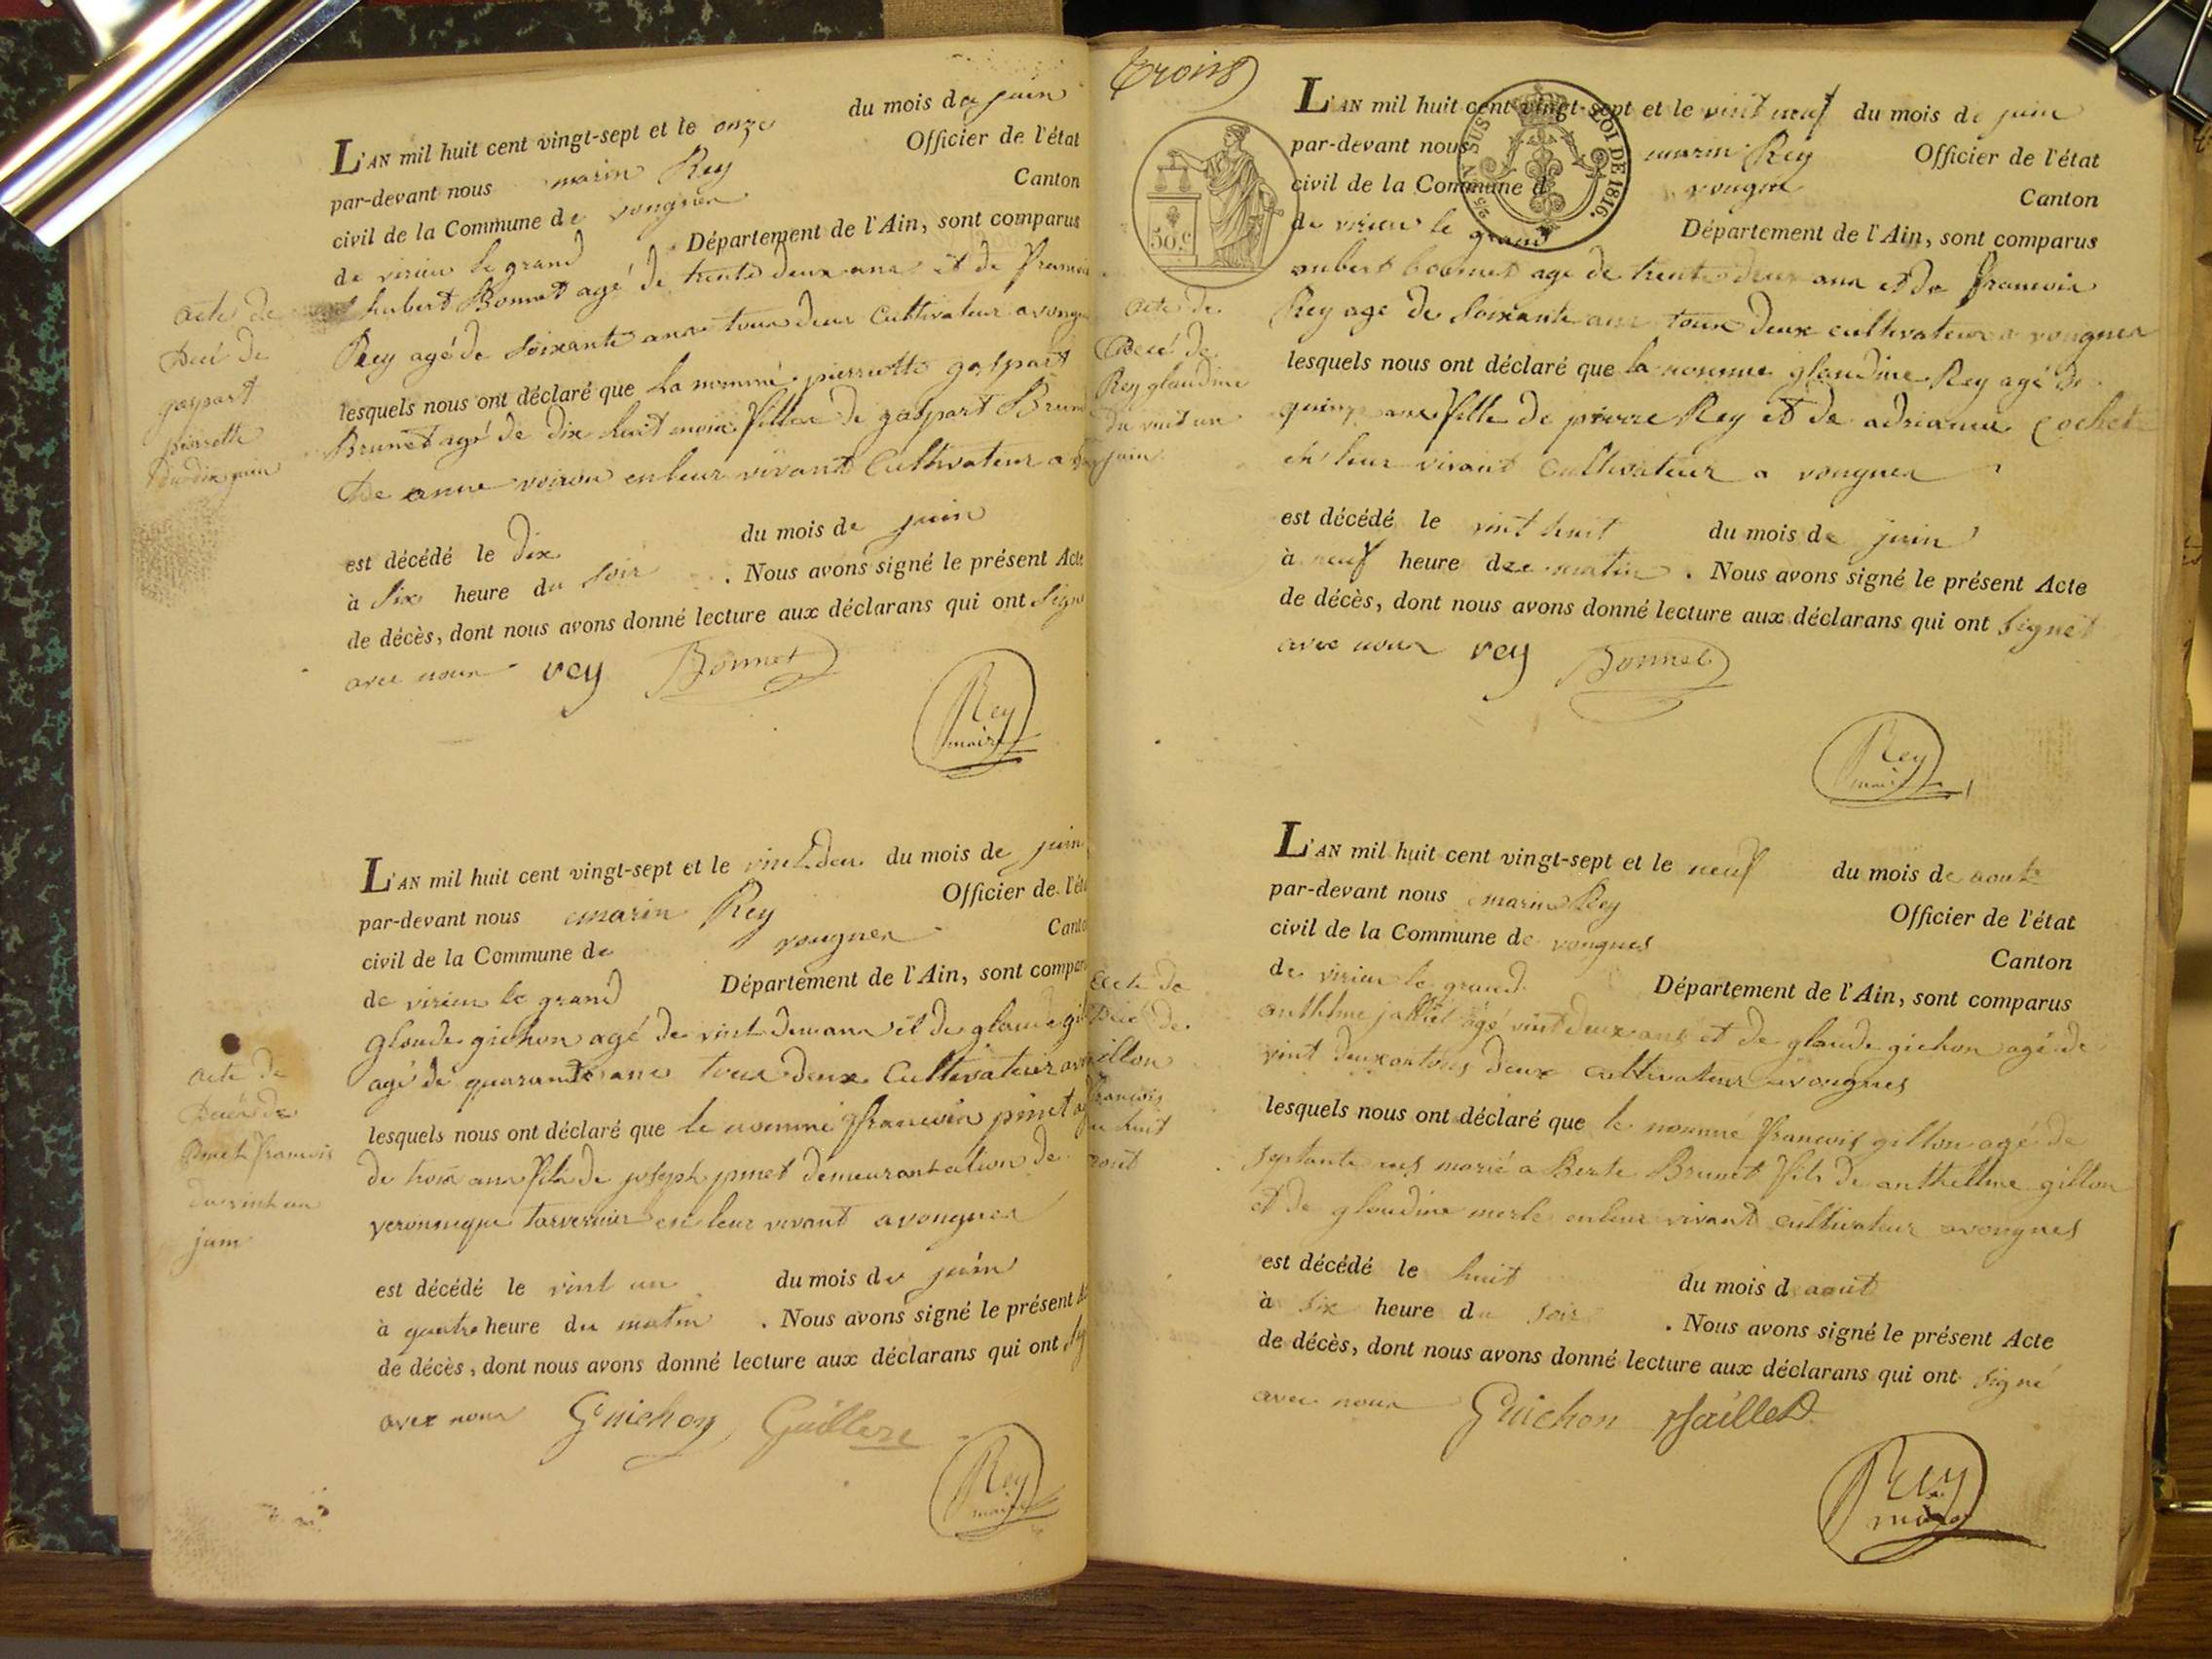 L'AN mil huit cent vingt-sept et le onze du mois de juin
par-devant nous marin Rey Officier de l'état
civil de la Commune de vongnes Canton
de virieu le grand Département de l'Ain, sont comparus
hubert Bonnet agé de trente deux ans et de francois
Rey agé de soixante ans tous deux cultivateur a vongn
lesquels nous ont déclaré que la nommé pierrette gaspart
Brunet agé de dix huit mois fille de gaspart Brun
De anne voiron en leur vivant cultivateur a
est décédé le dix du mois de juin
à six heure du soir . Nous avons signé le présent Acte
de décès, dont nous avons donné lecture aux déclarans qui ont signé
avec nous rey Bonnet
Rey
maire
acte de
Decé de
gaspart
pierrette
du dix juin
L'AN mil huit cent vingt-sept et le vint deu du mois de juin
par-devant nous marin Rey Officier de l'éta
civil de la Commune de vongnes Canto
de virieu le grand Département de l'Ain, sont compar
glaude gichon agé de vint deux ans et de glaude gi
agé de quarante ans tous deux cultivateur a
lesquels nous ont déclaré que le nommé francois pinet a
de trois ans fils de joseph pinet demeurant de
veronique en leur vivant a vongnes
est décédé le vint un du mois de juin
à quatre heure du matin . Nous avons signé le présent A
de décès, dont nous avons donné lecture aux déclarans qui ont sig
avec nous Guichon Guillere
Rey
maire
acte de
Decés de
Pinet francois
du vint un
juin
trois
50.c
LOI DE 1816.
EN SUS
L'AN mil huit cent vingt-sept et le vint neuf du mois de juin
par-devant nous marin Rey Officier de l'état
civil de la Commune de vongnes Canton
de virieu le grand Département de l'Ain, sont comparus
ubert bonnet age de trente deux ans et de francois
Rey age de soixante ans tous deux cultivateur a vongnes
lesquels nous ont déclaré que la nommé glaudine Rey agé de
quinze ans fille de pierre Rey et de adrianne Cochet
en leur vivant cultivateur a vongnes
est décédé le vint huit du mois de juin
à neuf heure de matin . Nous avons signé le présent Acte
de décès, dont nous avons donné lecture aux déclarans qui ont signet
avec nous rey Bonnet
Rey
maire
acte de
Decé de
Rey glaudine
du vint
juin
L'AN mil huit cent vingt-sept et le neuf du mois de aout
par-devant nous marin Rey Officier de l'état
civil de la Commune de vongnes Canton
de virieu le grand Département de l'Ain, sont comparus
anthelme jalliet agé vint deux ans et de glaude gichon agé de
vint deux an tous deux cultivateur a vongnes
lesquels nous ont déclaré que le nommé francois gillon agé de
septante ans marié a Berte Brunet fils de anthelme gillon
et de glaudine merle en leur vivant cultivateur a vongnes
est décédé le huit du mois d aout
à six heure du soir . Nous avons signé le présent Acte
de décès, dont nous avons donné lecture aux déclarans qui ont signé
avec nous Guichon Jaillet
Rey
maire
acte de
Decé de
illon
francois
u huit
aout